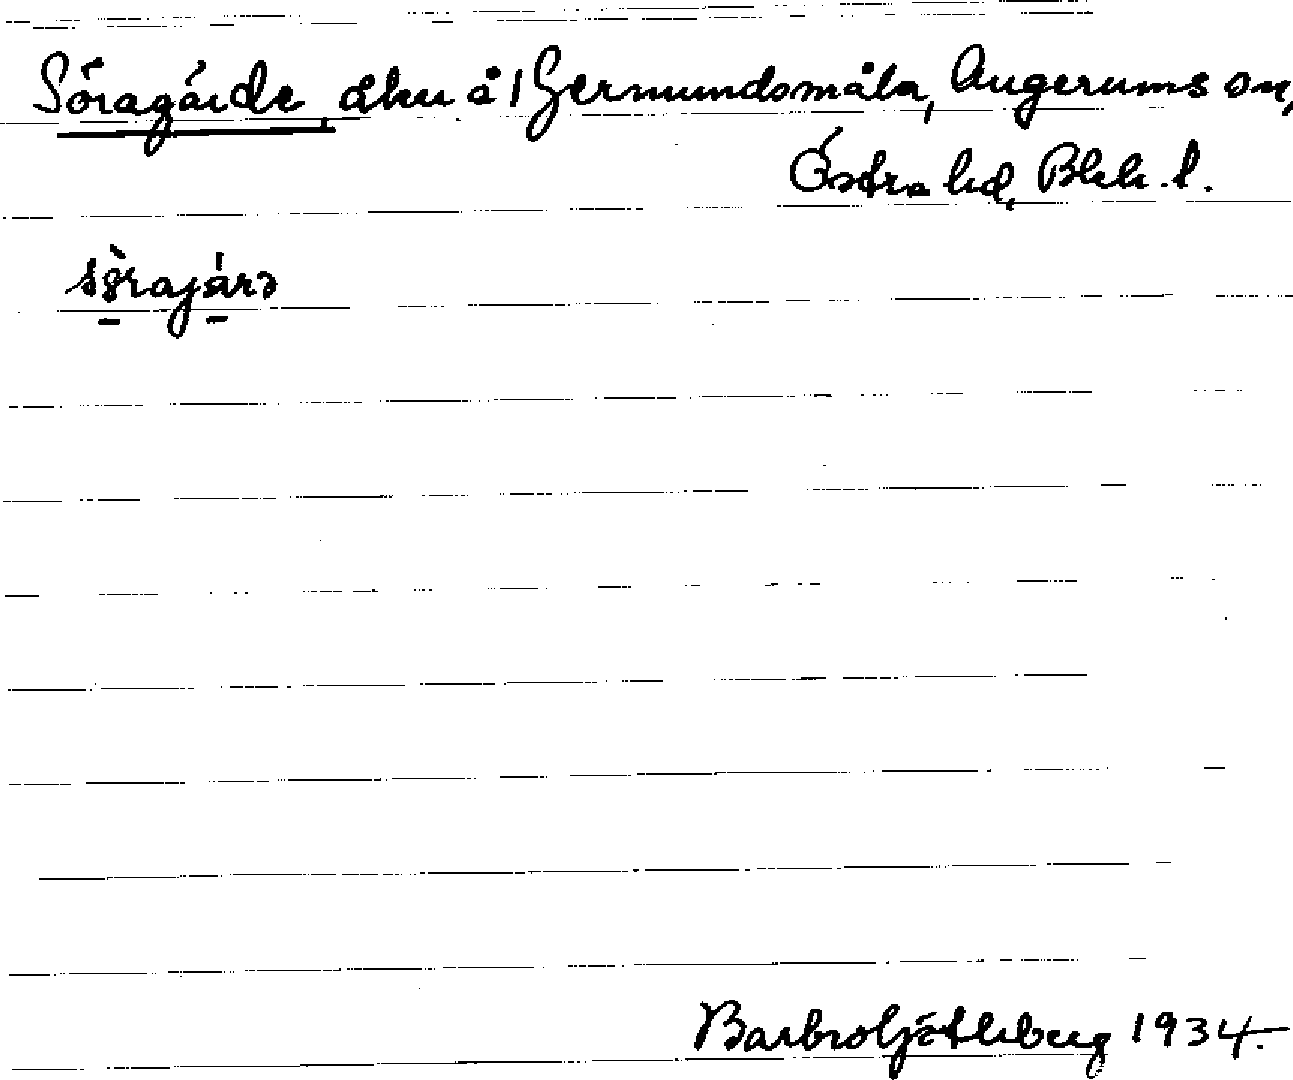 Söragärde, åker å 1 Germundsmåla, Augerums sn,
Östra hd, Blek. l.
sö̀rajárə
Barbro Götleberg 1934.